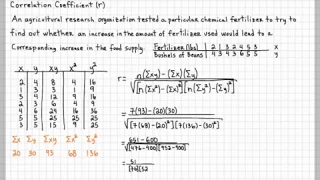 Correlation Coefficient (r)
An agricultural research organization tested a particular chemical fertilizer to try to
find out whether an increase in the amount of fertilizer used would lead to a
corresponding increase in the food supply. Fertilizer (lbs) 2 1 3 2 4 5 3 x
Bushels of Beans 4 3 4 3 6 5 5 y
x y xy x² y²
2 4 8 4 16
1 3 3 1 9
3 4 12 9 16
2 3 6 4 9
4 6 24 16 36
5 5 25 25 25
3 5 15 9 25
Σx Σy Σxy Σx² Σy²
20 30 93 68 136
r = n(Σxy) - (Σx)(Σy)
√[n(Σx²) - (Σx)²][n(Σy²) - (Σy)²]
= 7(93) - (20)(30)
√[7(68) - (20)²][7(136) - (30)²]
= 651 - 600
√(476 - 400)(952 - 900)
= 51
√(76)(52